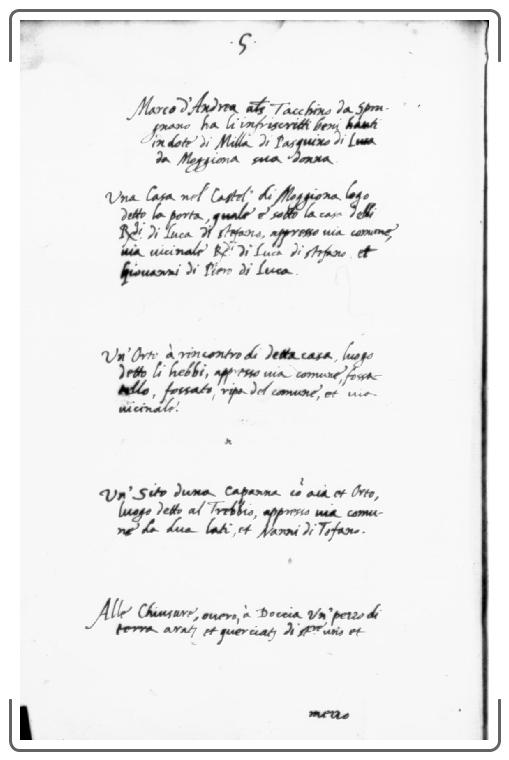 .5.
Marco d'Andrea als Tacchino da Spru-
gnano ha li infriscritti beni hauti
in dote di Milla di Pasquino di Luca
da Moggiona sua donna
Una Casa nel Castel di Moggiona logo
detto la porta, quale è sotto la casa delli
Rdi di Luca di stefano, appresso via comune,
via vicinale Rdi di Luca di stefano et
Giovanni di Piero di Luca.
Un' Orto à rincontro di detta casa, luogo
detto li hebbi, appresso via comune, fossa-
tello, fossato, ripa del comune, et via
vicinale.
Un' Sito duna Capanna cò aia et Orto,
luogo detto al Trebbio, appresso via comu-
ne da dua lati, et Nanni di Tofano.
Alle Chiusure, overo, à Doccia Un' pezzo di
terra et di uno et
mezzo